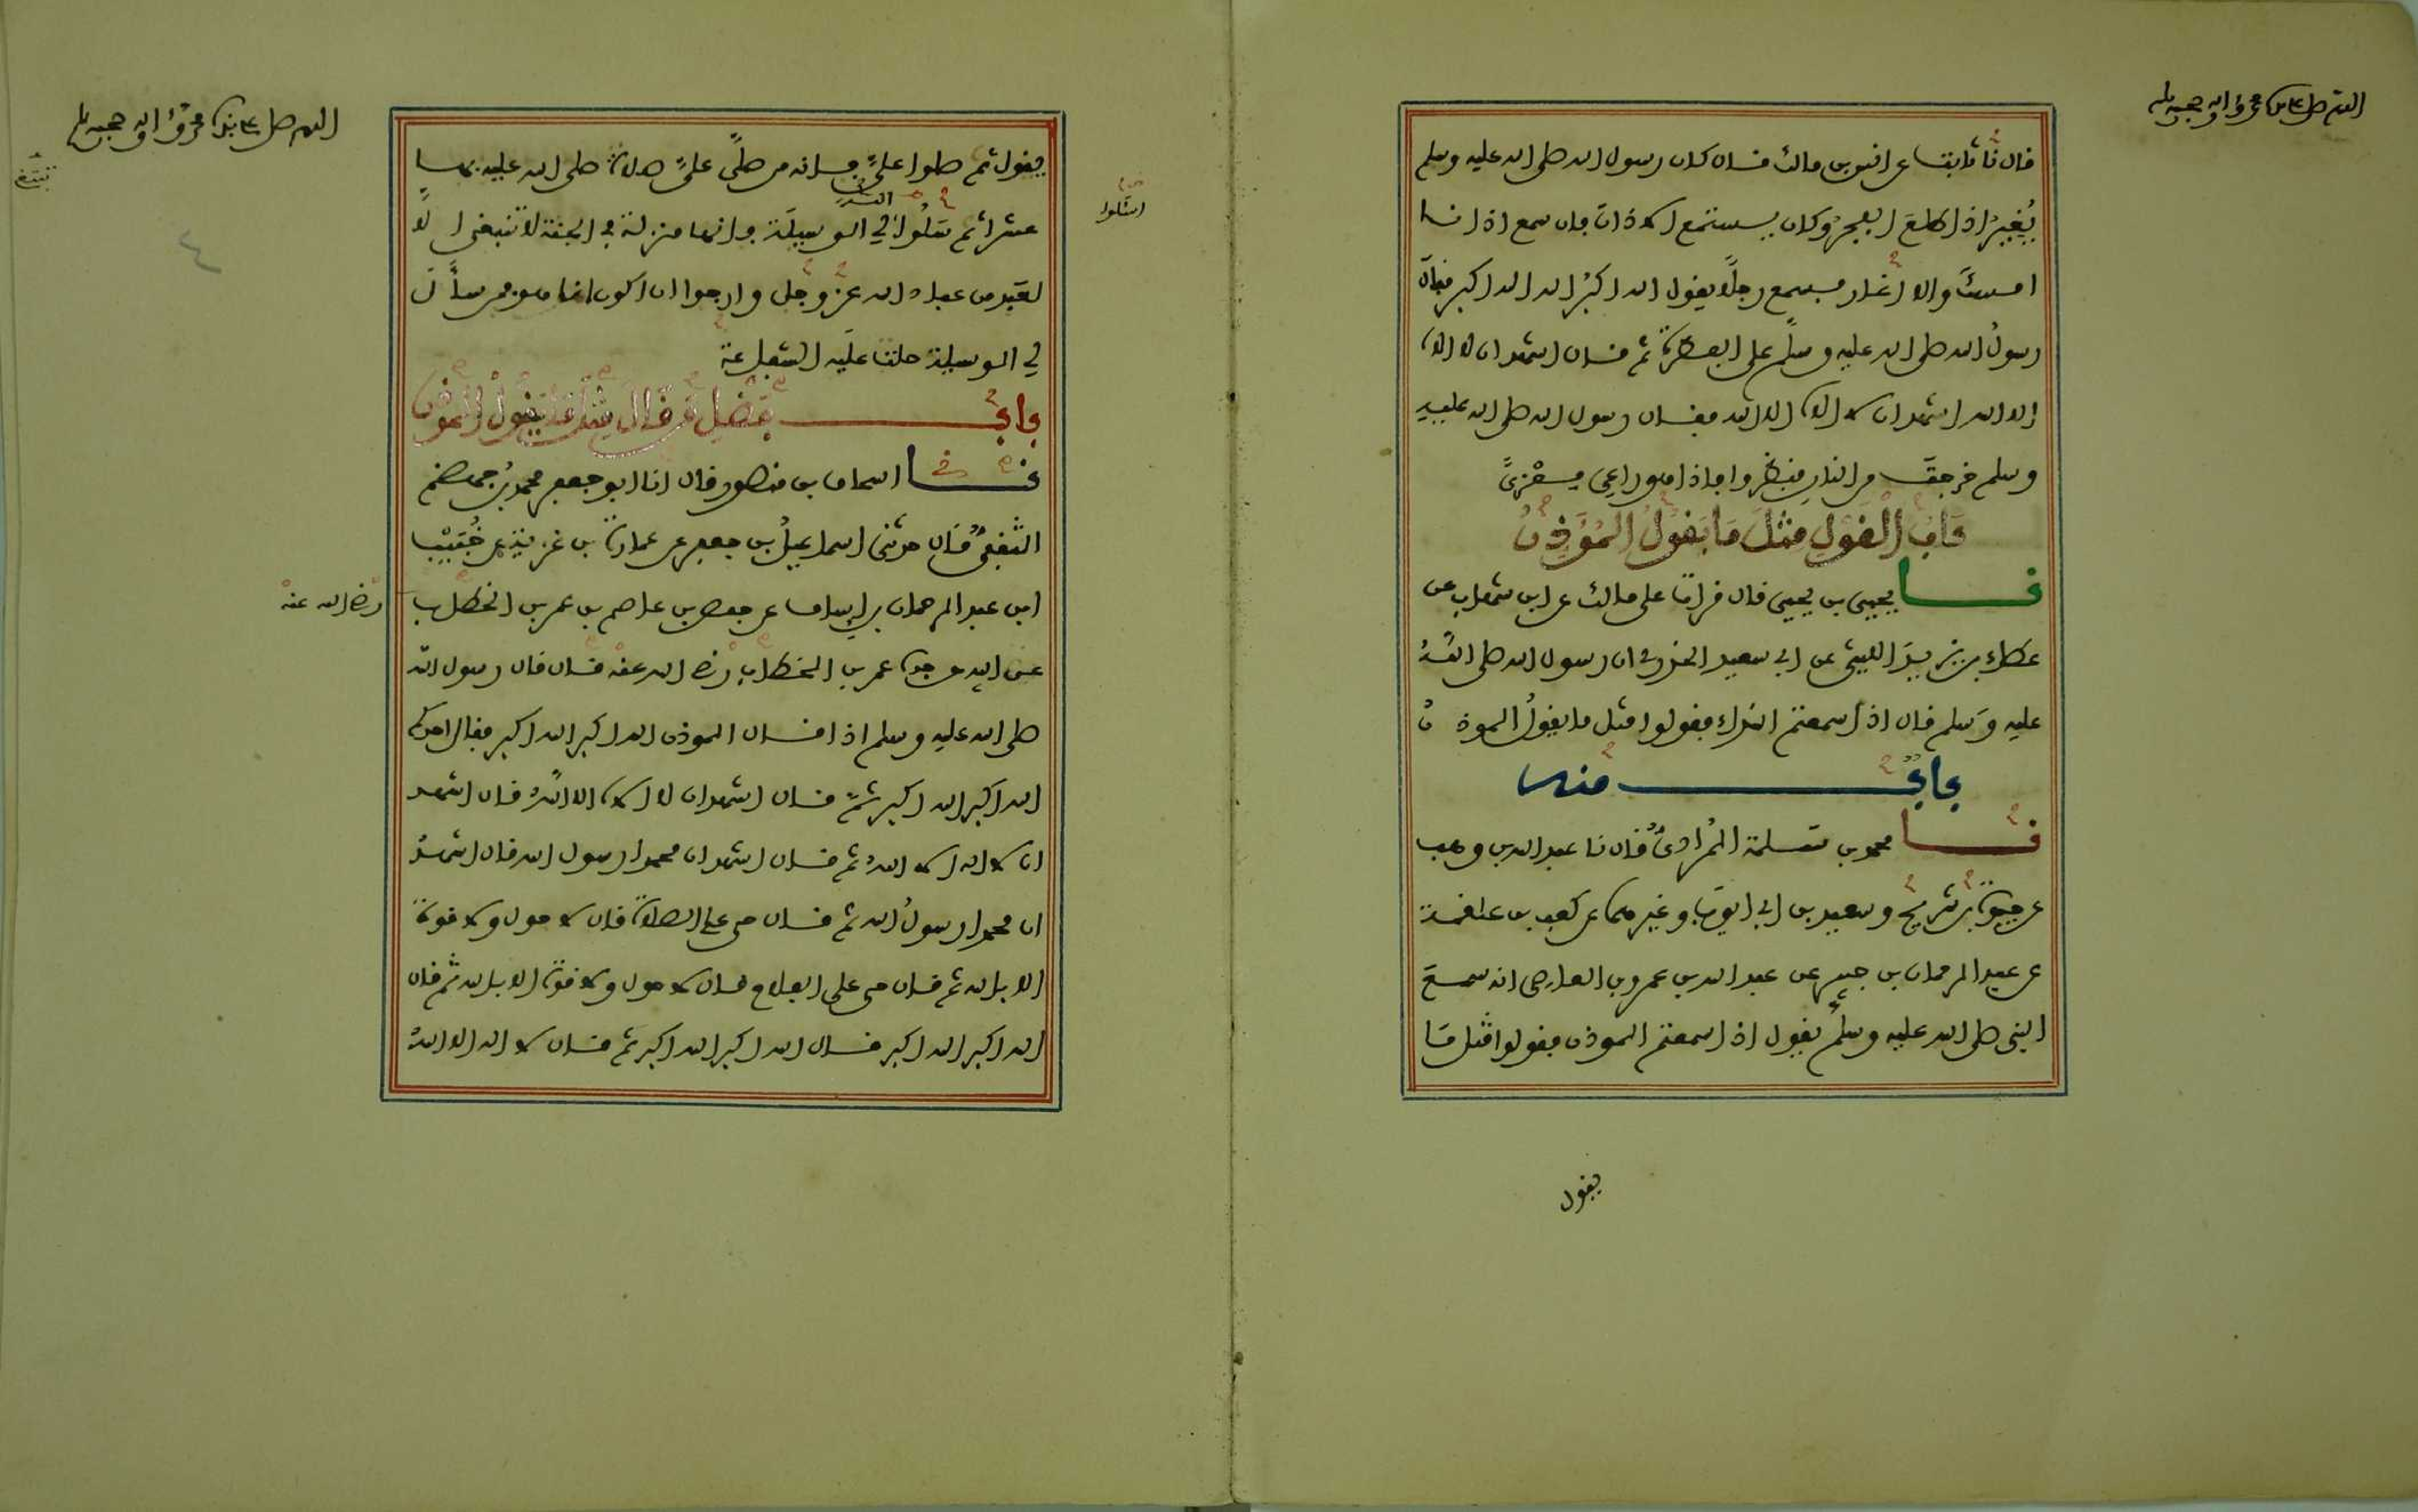 اللهم صل على سيدنا محمد وآله وصحبه وسلم
قال نا ثابت عن انس بن مالك قال كان رسول الله صلى الله عليه وسلم
يُغيرُ اذا طلعَ الفجرُ وكان يستمع الاذان فان سمع اذانا
امسكَ والا اغار فسمع رجلًا يقول الله اكبرُ الله اكبر فقال
رسولُ الله صلى الله عليه وسلم على الفطرة ثم قال اشهد ان لا اله
الا الله اشهد ان لا اله الا الله فقال رسول الله صلى الله عليه
وسلم خرجتَ من النار فنظروا فاذا هو راعي مِعْزىً
بَابُ الْقَوْلِ مِثْلَ مَا يَقُولُ الْمُؤَذِّنُ
نا يحيى بن يحيى قال قرات على مالك عن ابن شهاب عن
عطاء بن يزيدَ الليثي عن ابي سعيد الخدري ان رسول الله صلى اللهُ
عليه وَسلم قال اذا سمعتم النداء فقولوا مثل ما يقولُ الموذنُ
بابٌ منه
نا محمد بن سلمة المُرادىُّ قال نا عبد الله بن وهب
عن حيوةَ بن شريحٍ وسعيد بن ابي ايوبَ وغيرهما عن كعب بن علقمة
عن عبد الرحمان بن جبير عن عبد الله بن عمرو بن العاصى انه سمعَ
النبي صلى الله عليه وسلم يقول اذا سمعتم الموذن فقولوا مثل مَا
يقول
اللهم صل على سيدنا محمد وآله وصحبه وسلم
يقول ثم صلوا عليَّ فانه من صلَّى عليَّ صلاة صلى الله عليه بها
عشرا ثم سَلُوا الله لي الوسيلَة فانها منزلة في الجنة لا تنبغي الَّا
لعَبد من عباد الله عزَّ وجل وارجوا ان اكون انا هو فمن سألَ
لي الوسيلة حلت عليه الشفاعة
اسْئَلوا
بابٌ فَضْلِ مَن قَالَ مِثْلَ مَا يَقُولُ الْمُؤذن
نا اسحاق بن منصور قال انا ابو جعفر محمد بنُ جهضم
الثقفيُّ قال حدثني اسماعيلُ بن جعفر عن عمارة بن غزية عن خُبَيْب
ابن عبد الرحمان بن اساف عن حفص بن عاصم بن عمر بن الخطاب
رضي الله عنهْ
عن ابيه عن جده عمر بن الخطاب رضي الله عنه قال قال رسول الله
صلى الله عليه وسلم اذا قال الموذن الله اكبر الله اكبر فقال احدكم
الله اكبر الله اكبر ثمَّ قال اشهد ان لا اله الا اللهُ قال اشهد
ان لا اله الا اللهُ ثم قال اشهد ان محمدا رسول الله قال اشهدُ
ان محمدا رسولُ الله ثم قال حي على الصلاة قال لا حول ولا قوة
الا بالله ثم قال حي على الفلاح قال لا حول ولا قوة الا بالله ثم قال
الله اكبر الله اكبر قال الله اكبر الله اكبر ثم قال لا اله الا اللهُ